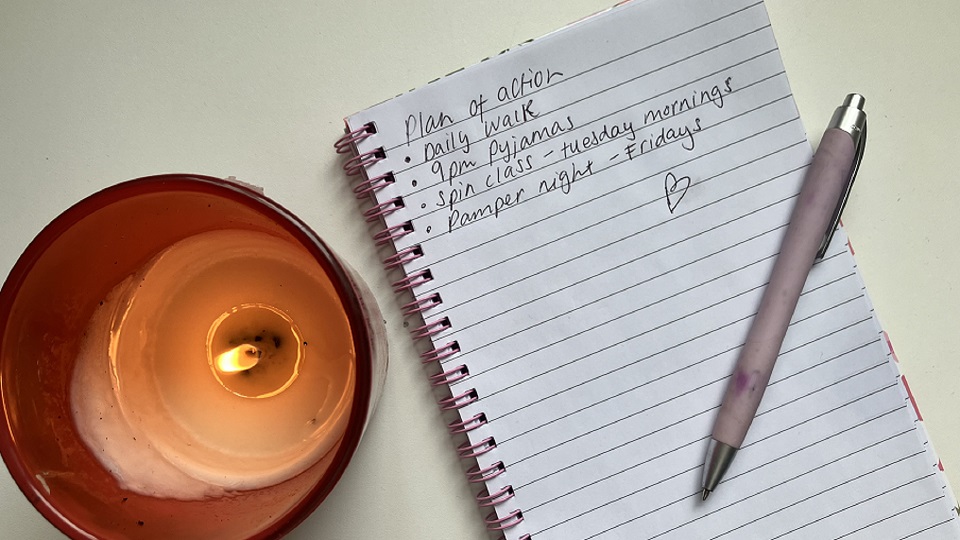 Plan of action
• Daily walk
• 9pm Pyjamas
• Spin class - tuesday mornings
• Pamper night - Fridays